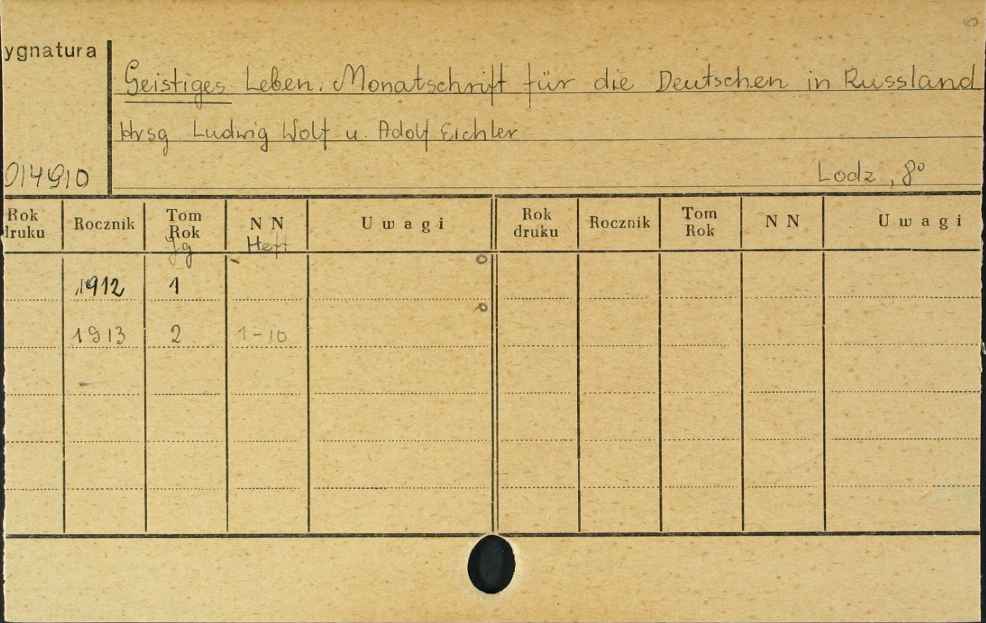 ygnatura
Geistiges Leben. Monatschrift für die Deutschen in Russland
Hrsg Ludwig Wolf u. Adolf Eichler
014910
Lodz, 8°
Rok druku Rocznik Tom Rok N N Uwagi Rok druku Rocznik Tom Rok N N Uwagi
Jg Heft
1912 1
1913 2 1-10